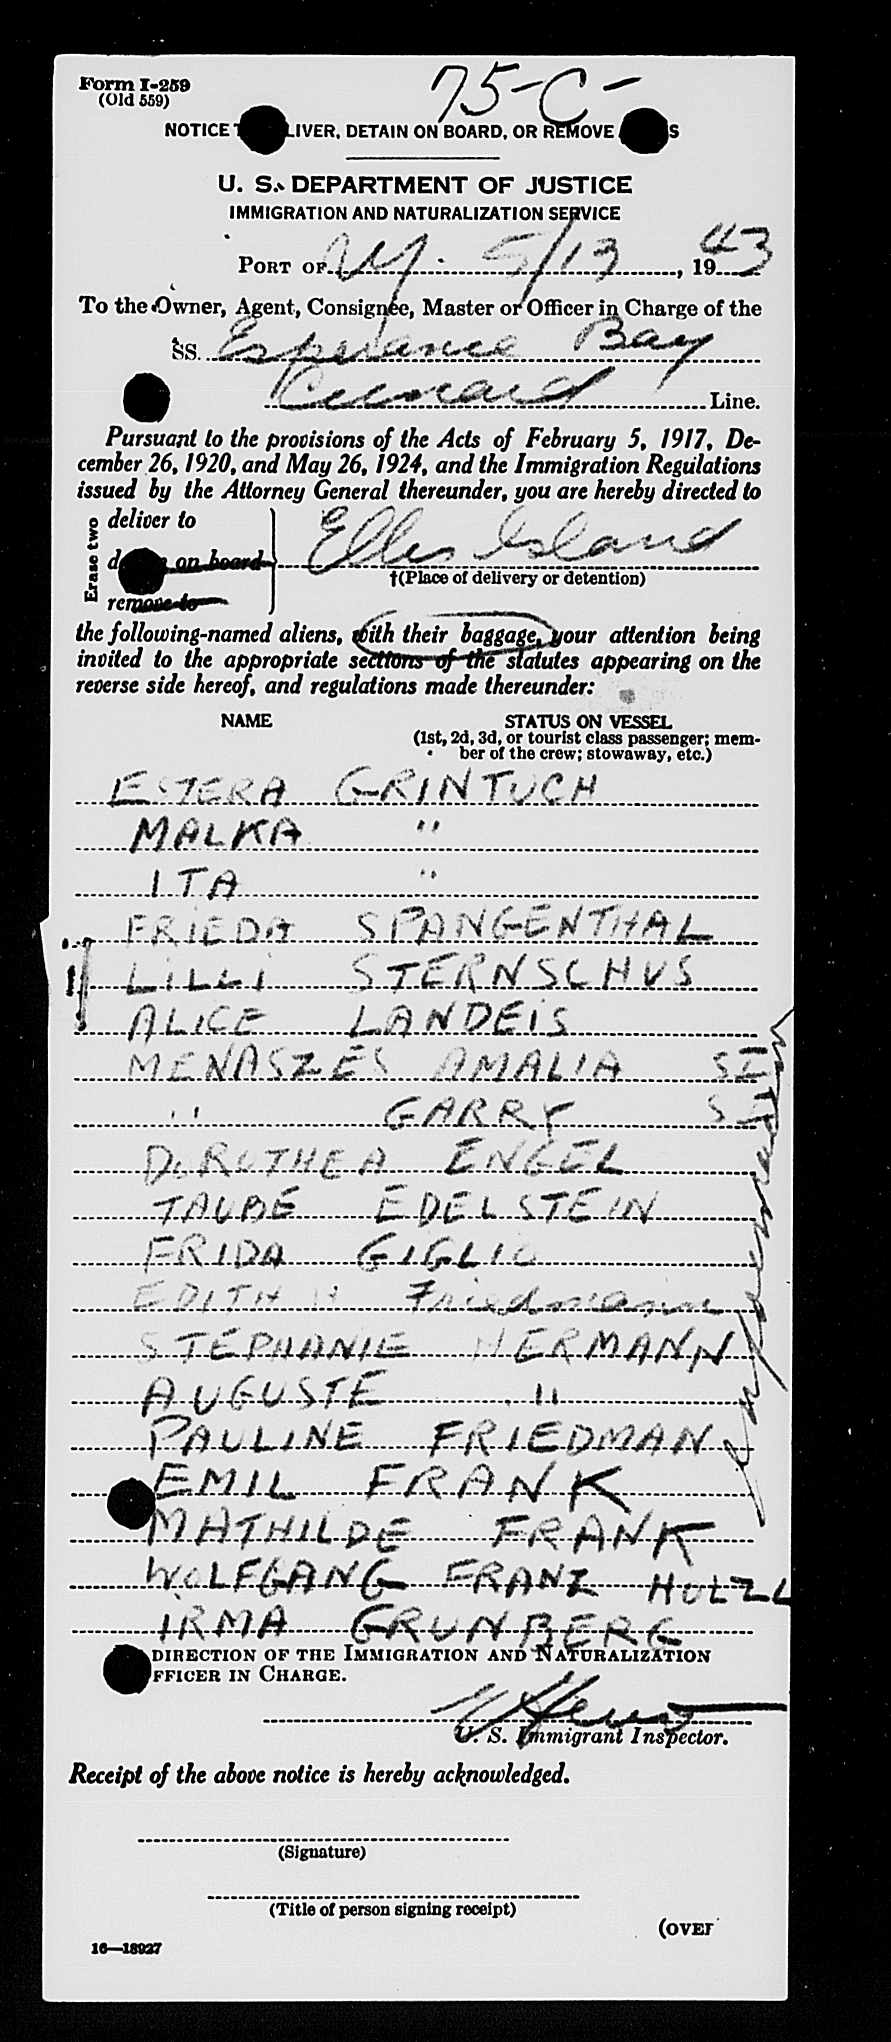 Form I-259
(Old 559)
75-C-
NOTICE T LIVER, DETAIN ON BOARD, OR REMOVE S
U. S. DEPARTMENT OF JUSTICE
IMMIGRATION AND NATURALIZATION SERVICE
PORT OF N.Y. 5/13, 1943
To the Owner, Agent, Consignee, Master or Officer in Charge of the
SS. Esperance Bay
Cunard Line.
Pursuant to the provisions of the Acts of February 5, 1917, De-
cember 26, 1920, and May 26, 1924, and the Immigration Regulations
issued by the Attorney General thereunder, you are hereby directed to
Erase two
deliver to
d on board
remove to
Ellis Island
†(Place of delivery or detention)
the following-named aliens, with their baggage, your attention being
invited to the appropriate sections of the statutes appearing on the
reverse side hereof, and regulations made thereunder:
NAME STATUS ON VESSEL
(1st, 2d, 3d, or tourist class passenger; mem-
ber of the crew; stowaway, etc.)
ESTERA GRINTUCH
MALKA "
ITA "
FRIEDA SPANGENTHAL
LILLI STERNSCHUS
ALICE LANDEIS
MENASZES AMALIA
" GARRY
DOROTHEA ENGEL
TAUBE EDELSTEIN
FRIDA GIGLIO
EDITH H Friedmann
STEPHANIE HERMANN
AUGUSTE "
PAULINE FRIEDMAN
EMIL FRANK
MATHILDE FRANK
WOLFGANG FRANZ HOLZL
IRMA GRUNBERG
DIRECTION OF THE IMMIGRATION AND NATURALIZATION
FFICER IN CHARGE.
U. S. Immigrant Inspector.
Receipt of the above notice is hereby acknowledged.
(Signature)
(Title of person signing receipt)
(OVER
16—18927